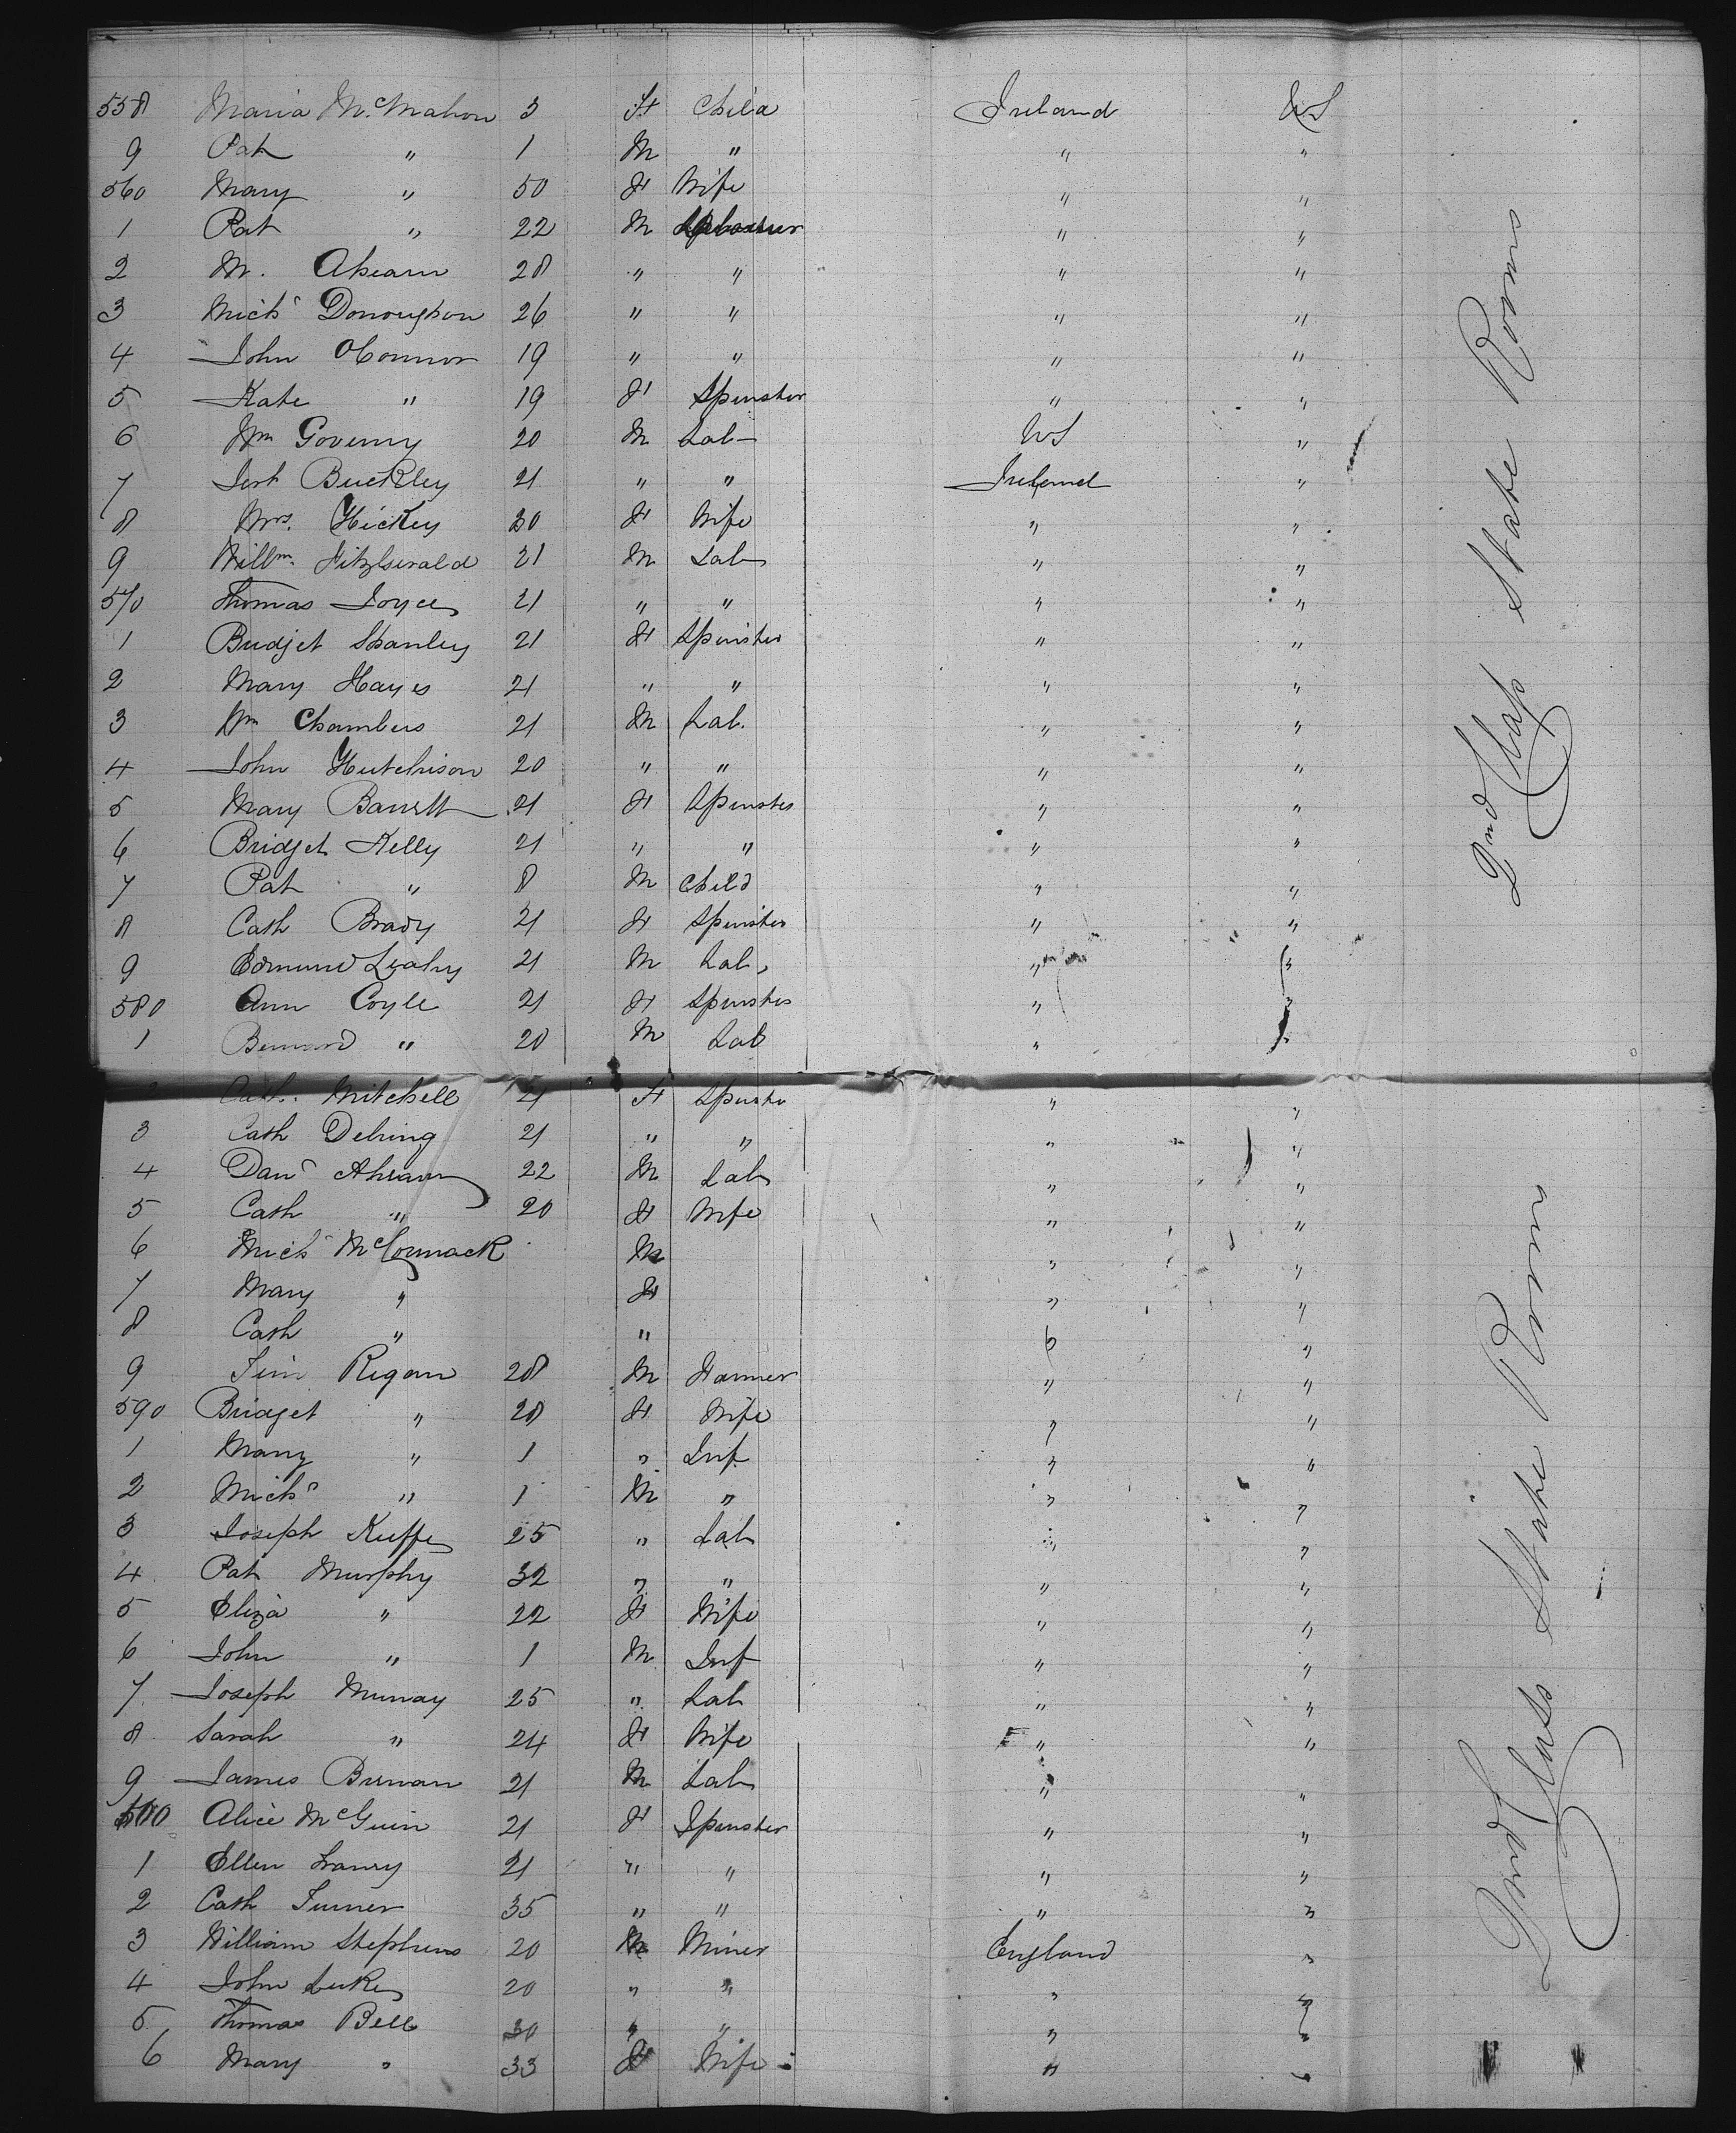 558 Maria McMahon 3 F Child Ireland US
9 Pat " 1 M " " "
560 Mary " 50 F Wife " "
1 Pat " 22 M Labourer " "
2 M. Ahearn 28 " " " "
3 Michl Donoughon 26 " " " "
4 John OConnor 19 " " " "
5 Kate " 19 F Spinster " "
6 Wm Governy 20 M Lab US "
7 Buckley 21 " " Ireland "
8 Mrs. Hickey 30 F Wife " "
9 Willm. Fitzgerald 21 M Lab " "
570 Thomas Joyce 21 " " " "
1 Bridjet Shanley 21 F Spinster " "
2 Mary Hayes 21 " " " "
3 Wm Chambers 21 M Lab. " "
4 John Hutchison 20 " " " "
5 Mary Barrett 21 F Spinster " "
6 Bridjet Kelly 21 " " " "
7 Pat " 8 M Child " "
8 Cath Brady 21 F Spinster " "
9 Edmund Leahy 21 M Lab, " "
580 Ann Coyle 21 F Spinster " "
1 Bernard " 20 M Lab " "
Cath. Mitchell 21 F Spinster " "
3 Cath Delring 21 " " " "
4 Danl Ahearn 22 M Lab " "
5 Cath " 20 F Wife " "
6 Michl McCormack M " "
7 Mary " F " "
8 Cath " " " "
9 Tim Regan 28 M Farmer " "
590 Bridget " 28 F Wife " "
1 Mary " 1 " Inf " "
2 Michl " 1 M " " "
3 Joseph Kuffe 25 " Lab " "
4 Pat Murphy 32 " " " "
5 Eliza " 22 F Wife " "
6 John " 1 M Inf " "
7 Joseph Murray 25 " Lab " "
8 Sarah " 24 F Wife " "
9 James Brenan 21 M Lab " "
600 Alice McGuin 21 F Spinster " "
1 Ellen 21 " " " "
2 Cath Turner 35 " " " "
3 William Stephens 20 M Miner England "
4 John Luke 20 " " " "
5 Thomas Bell 30 " " " "
6 Mary " 33 F Wife " "
2nd Class State Rooms
2nd Class State Room